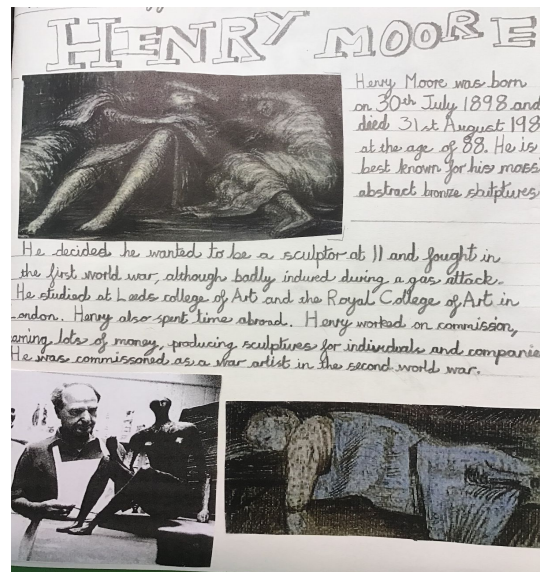 HENRY MOORE
Henry Moore was born
on 30th July 1898 and
died 31st August 198
at the age of 88. He is
best known for his mass
abstract bronze sculptures
He decided he wanted to be a sculptor at 11 and fought in
the first world war, although badly indured during a gas attack.
He studied at Leeds college of Art and the Royal College of Art in
ondon. Henry also spent time abroad. Henry worked on commission,
rning lots of money, producing sculptures for individuals and companie
He was commissoned as a war artist in the second world war.